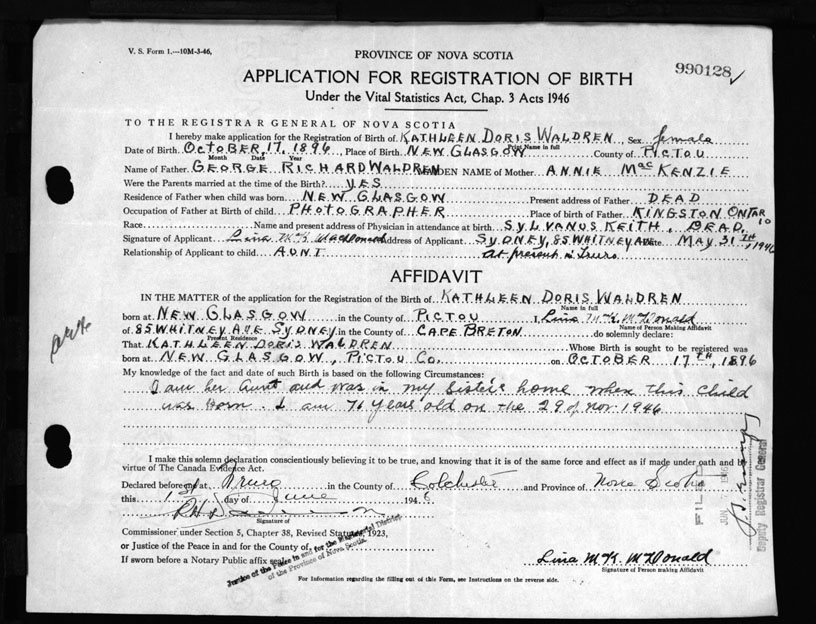 V. S. Form 1.—10M-3-46,
PROVINCE OF NOVA SCOTIA
990128 ✓
APPLICATION FOR REGISTRATION OF BIRTH
Under the Vital Statistics Act, Chap. 3 Acts 1946
TO THE REGISTRAR GENERAL OF NOVA SCOTIA
I hereby make application for the Registration of Birth of KATHLEEN DORIS WALDREN, Sex female
Print Name in full
Date of Birth OCTOBER, 17, 1896, Place of Birth NEW GLASGOW County of PICTOU
Month Date Year
Name of Father GEORGE RICHARD WALDREN MAIDEN NAME of Mother ANNIE MacKENZIE
Were the Parents married at the time of the Birth? YES
Residence of Father when child was born NEW GLASGOW Present address of Father DEAD
Occupation of Father at Birth of child PHOTOGRAPHER Place of birth of Father KINGSTON ONTARIO
Race Name and present address of Physician in attendance at birth SYLVANUS KEITH, DEAD,
Signature of Applicant Address of Applicant SYDNEY, 85 WHITNEY AV Date MAY 31TH, 1946
Relationship of Applicant to child AUNT at present in Truro
AFFIDAVIT
IN THE MATTER of the application for the Registration of the Birth of KATHLEEN DORIS WALDREN
Name in full
born at NEW GLASGOW in the County of PICTOU I, Lina McK. McDonald
Name of Person Making Affidavit
of 85 WHITNEY AVE SYDNEY in the County of CAPE BRETON do solemnly declare:
Present Residence
That KATHLEEN DORIS WALDREN Whose Birth is sought to be registered was
born at NEW GLASGOW, PICTOU CO. on OCTOBER 17TH, 1896
My knowledge of the fact and date of such Birth is based on the following Circumstances:
I am her Aunt and was in my Sister's home when this child
was born. I am 76 years old on the 29 of nov. 1946
I make this solemn declaration conscientiously believing it to be true, and knowing that it is of the same force and effect as if made under oath and by
virtue of The Canada Evidence Act.
Declared before me at Truro in the County of Colchester and Province of Nova Scotia
this 1st day of June 1946
Signature of
Commissioner under Section 5, Chapter 38, Revised Statutes, 1923,
or Justice of the Peace in and for the County of
If sworn before a Notary Public affix seal
Justice of the Peace in and for the Magisterial District,
of the Province of Nova Scotia.
Lina McK. McDonald
Signature of Person making Affidavit
For Information regarding the filling out of this Form, see Instructions on the reverse side.
FILED
JUN
Deputy Registrar General